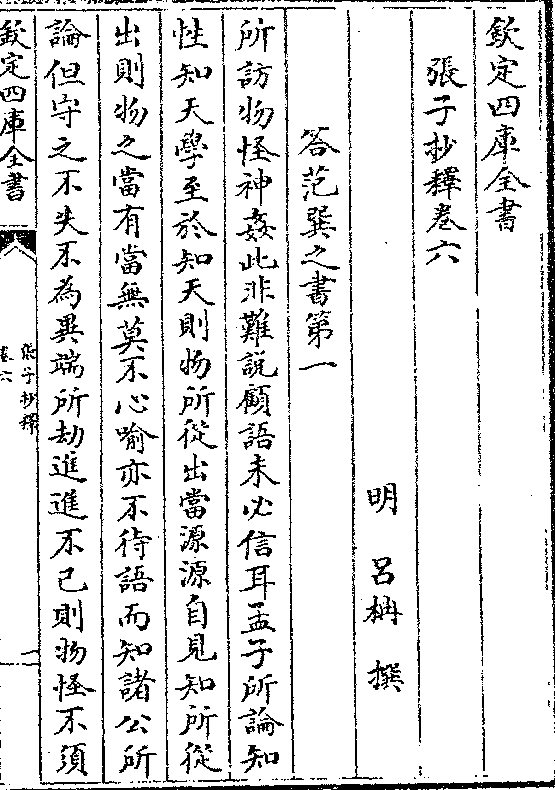 欽定四庫全書
張子抄釋卷六
明 呂柟 撰
答范巽之書第一
所訪物怪神姦此非難説顧語未必信耳孟子所論知
性知天學至於知天則物所從出當源源自見知所從
出則物之當有當無莫不心喻亦不待語而知諸公所
論但守之不失不為異端所劫進進不已則物怪不須
欽定四庫全書
張子抄釋
卷六
一